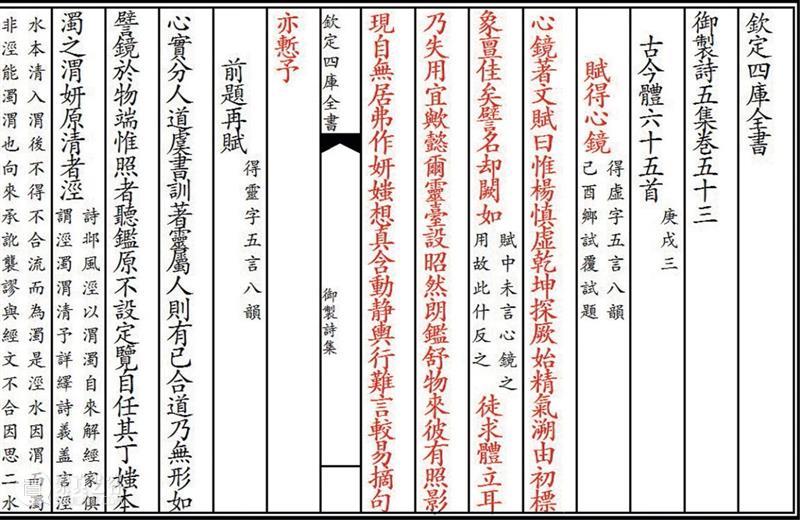 欽定四庫全書
御製詩五集卷五十三
古今體六十五首
庚戌三
賦得心鏡
得虛字五言八韻
己酉鄉試覆試題
心鏡著文賦曰惟楊慎虛乾坤探厥始精氣溯由初標
象亶佳矣譬名却闕如
賦中未言心鏡之
用故此什反之
徒求體立耳
乃失用宜歟懿爾靈臺設昭然朗鑑舒物來彼有照影
現自無居弗作妍媸想真含動静輿行難言較易摘句
欽定四庫全書
御製詩集
亦慙予
前題再賦
得靈字五言八韻
心實分人道虞書訓著靈屬人則有已合道乃無形如
譬鏡於物端惟照者聽鑑原不設定覽自任其丁媸本
濁之渭妍原清者涇
詩邶風涇以渭濁自來解經家俱
謂涇濁渭清予詳繹詩義蓋言涇
水本清入渭後不得不合流而為濁是涇水因渭而濁
非涇能濁渭也向來承訛襲謬與經文不合因思二水